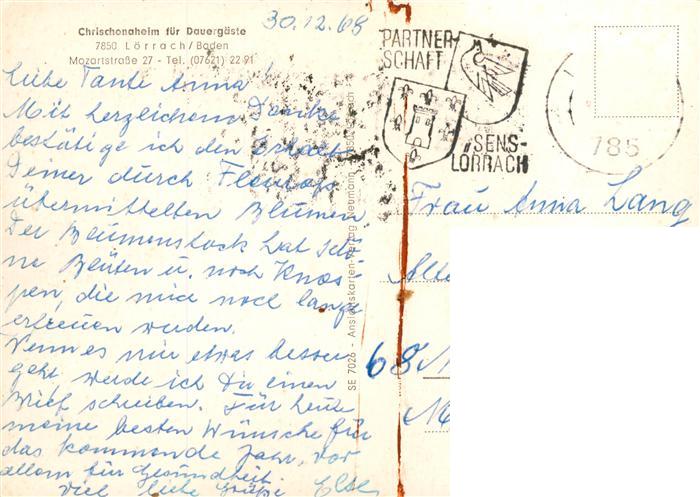 30.12.68
Chrischonaheim für Dauergäste
7850 Lörrach/Baden
Mozartstraße 27 - Tel. (07621) 22 91
Liebe Tante Anna!
Mit herzlichem Danke
bestätige ich den Erhalt
Deiner durch Fleurop
übermittelten Blumen.
Der Blumenstock hat schö-
ne Blüten u. noch Knos-
pen, die mich noch lange
erfreuen werden.
Wenn es mir etwas besser
geht, werde ich Dir einen
Brief schreiben. Für heute
meine besten Wünsche für
das kommende Jahr, vor
allem für Gesundheit.
Viel liebe Grüße Else
SE 7026 - Ansichtskarten-Verlag
PARTNER-
SCHAFT
SENS-
LÖRRACH
785
Frau Anna Lang
Alte
68